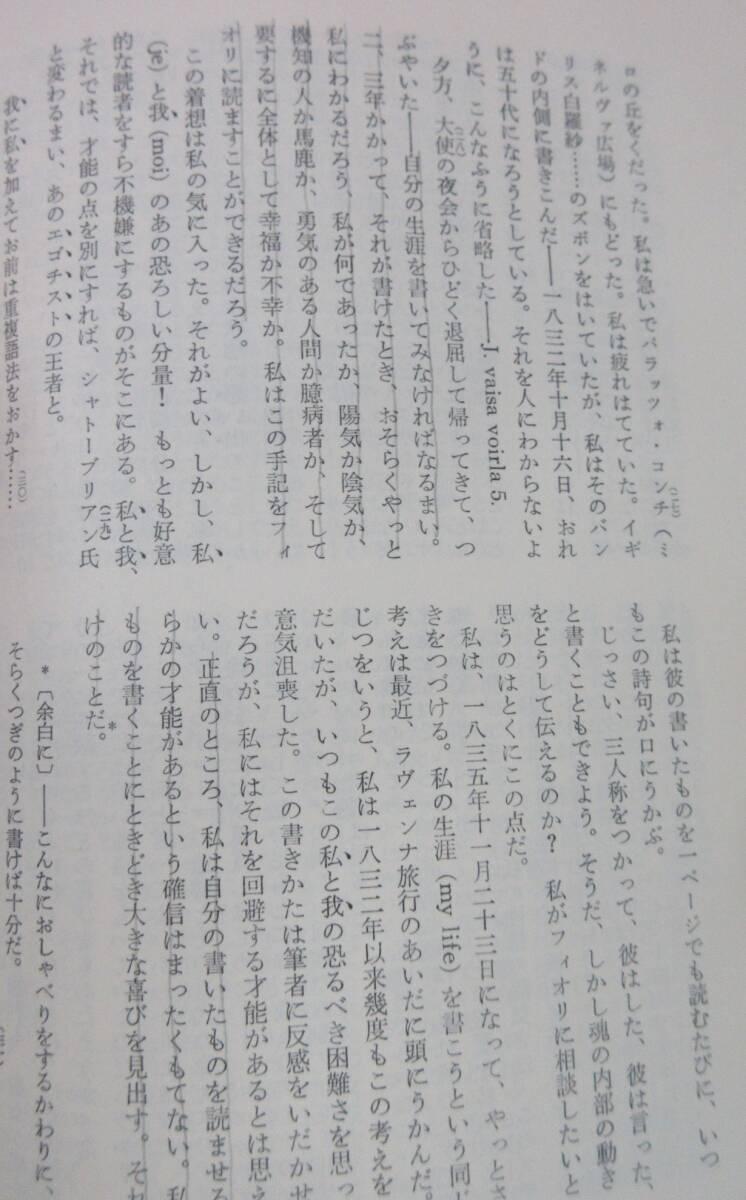 ロの丘をくだった。私は急いでパラッツォ・コンチ（ミ
（二七）
ネルヴァ広場）にもどった。私は疲れはてていた。イギ
リス白羅紗……のズボンをはいていたが、私はそのバン
ドの内側に書きこんだ――一八三二年十月十六日、おれ
は五十代になろうとしている。それを人にわからないよ
うに、こんなふうに省略した――J. vaisa voirla 5.
夕方、大使の夜会からひどく退屈して帰ってきて、つ
（二八）
ぶやいた――自分の生涯を書いてみなければなるまい。
二、三年かかって、それが書けたとき、おそらくやっと
私にわかるだろう、私が何であったか、陽気か陰気か、
機知の人か馬鹿か、勇気のある人間か臆病者か、そして
要するに全体として幸福か不幸か。私はこの手記をフィ
オリに読ますことができるだろう。
この着想は私の気に入った。それがよい、しかし、私
(je) と我 (moi) のあの恐ろしい分量！　もっとも好意
的な読者をすら不機嫌にするものがそこにある。私と我、
それでは、才能の点を別にすれば、シャトーブリアン氏
（二九）
と変わるまい、あのエゴチストの王者と。
我に私を加えてお前は重複語法をおかす……
（三〇）
私は彼の書いたものを一ページでも読むたびに、いつ
もこの詩句が口にうかぶ。
じっさい、三人称をつかって、彼はした、彼は言った、
と書くこともできよう。そうだ、しかし魂の内部の動き
をどうして伝えるのか？　私がフィオリに相談したいと
思うのはとくにこの点だ。
私は、一八三五年十一月二十三日になって、やっと
きをつづける。私の生涯 (my life) を書こうという同じ
考えは最近、ラヴェンナ旅行のあいだに頭にうかんだ。
じつをいうと、私は一八三二年以来幾度もこの考えを
だいたが、いつもこの私と我の恐るべき困難さを思っ
意気沮喪した。この書きかたは筆者に反感をいだかせ
だろうが、私にはそれを回避する才能があるとは思え
い。正直のところ、私は自分の書いたものを読ませる
らかの才能があるという確信はまったくもてない。私
ものを書くことにときどき大きな喜びを見出す。それ
けのことだ。*
* 〔余白に〕――こんなにおしゃべりをするかわりに、
そらくつぎのように書けば十分だ。